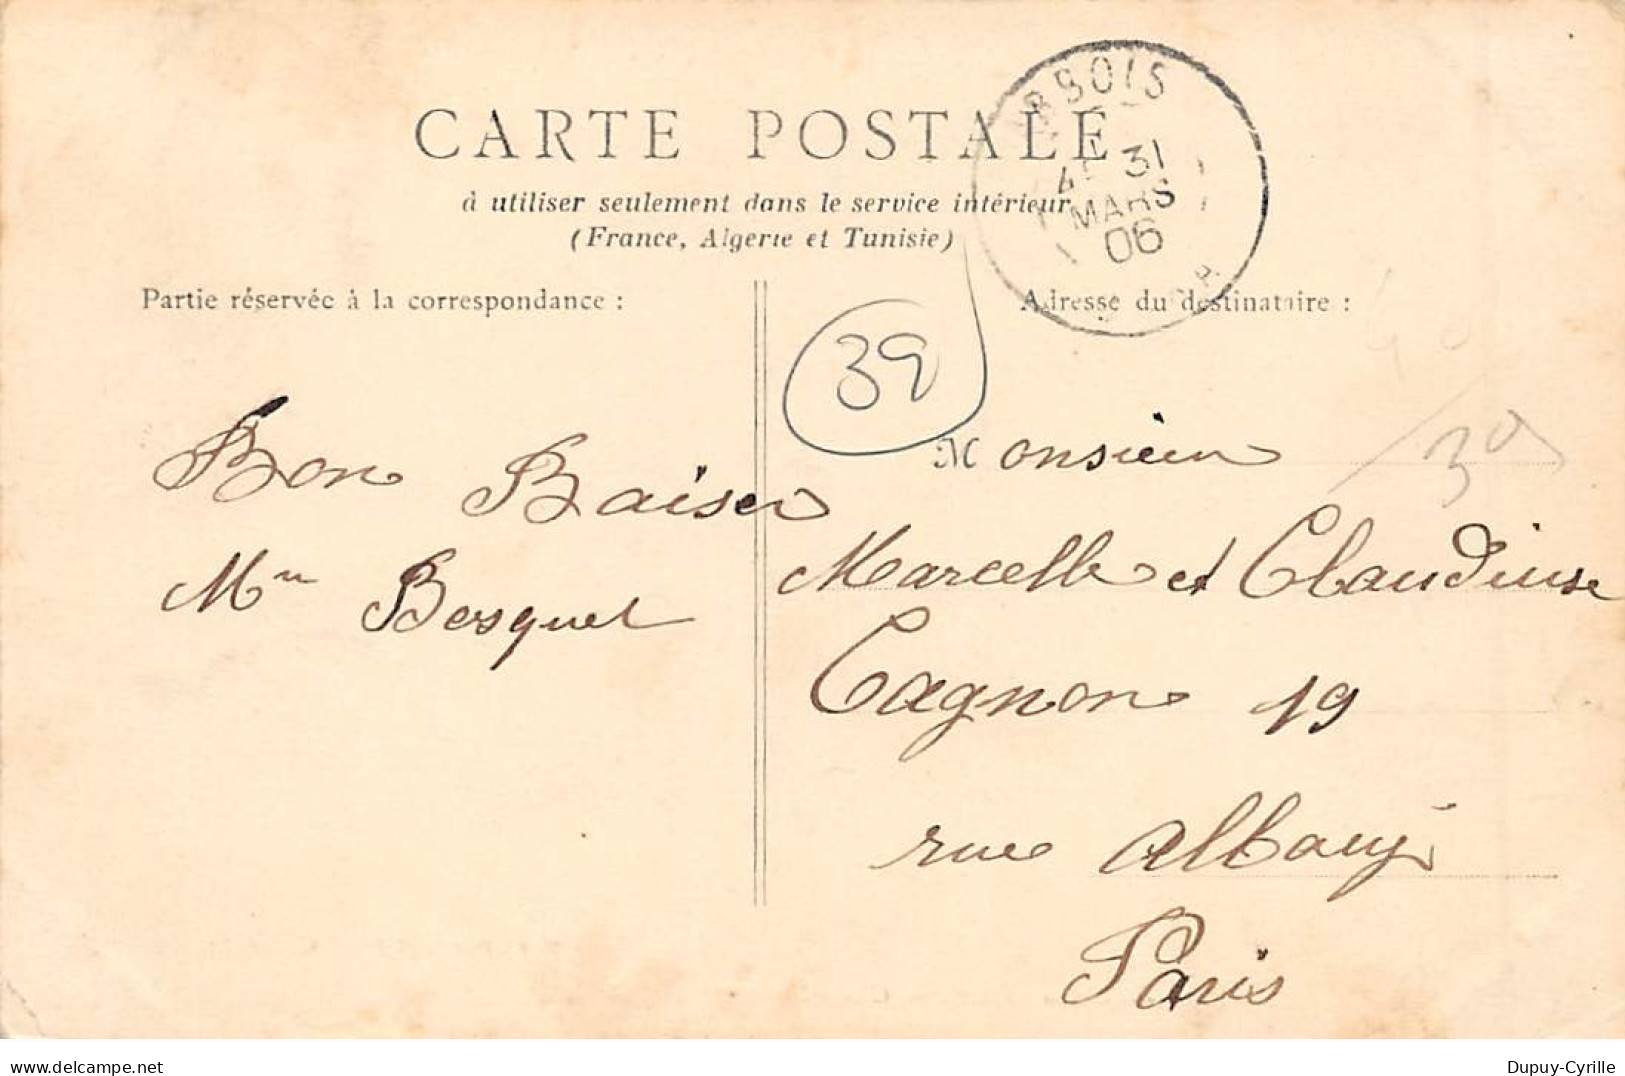 CARTE POSTALE
à utiliser seulement dans le service intérieur
(France, Algerie et Tunisie)
31
MARS
06
Partie réservée à la correspondance :
Adresse du destinataire :
39
30
Bon Baiser
Besquet
Monsieur
Marcelle et Claudinse
Cagnon 19
rue alBouy
Paris
Dupuy-Cyrille